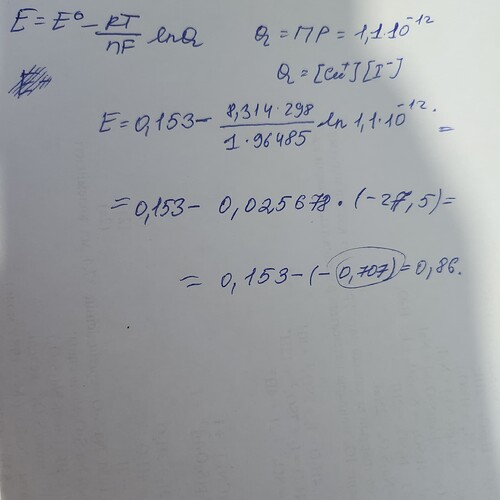 E = E⁰ - RT/nF lnQ Q = ПР = 1,1·10⁻¹²
Q = [Cu⁺][I⁻]
E = 0,153 - 8,314·298/1·96485 ln 1,1·10⁻¹² =
= 0,153 - 0,025678·(-27,5) =
= 0,153 - (-0,707) = 0,86.